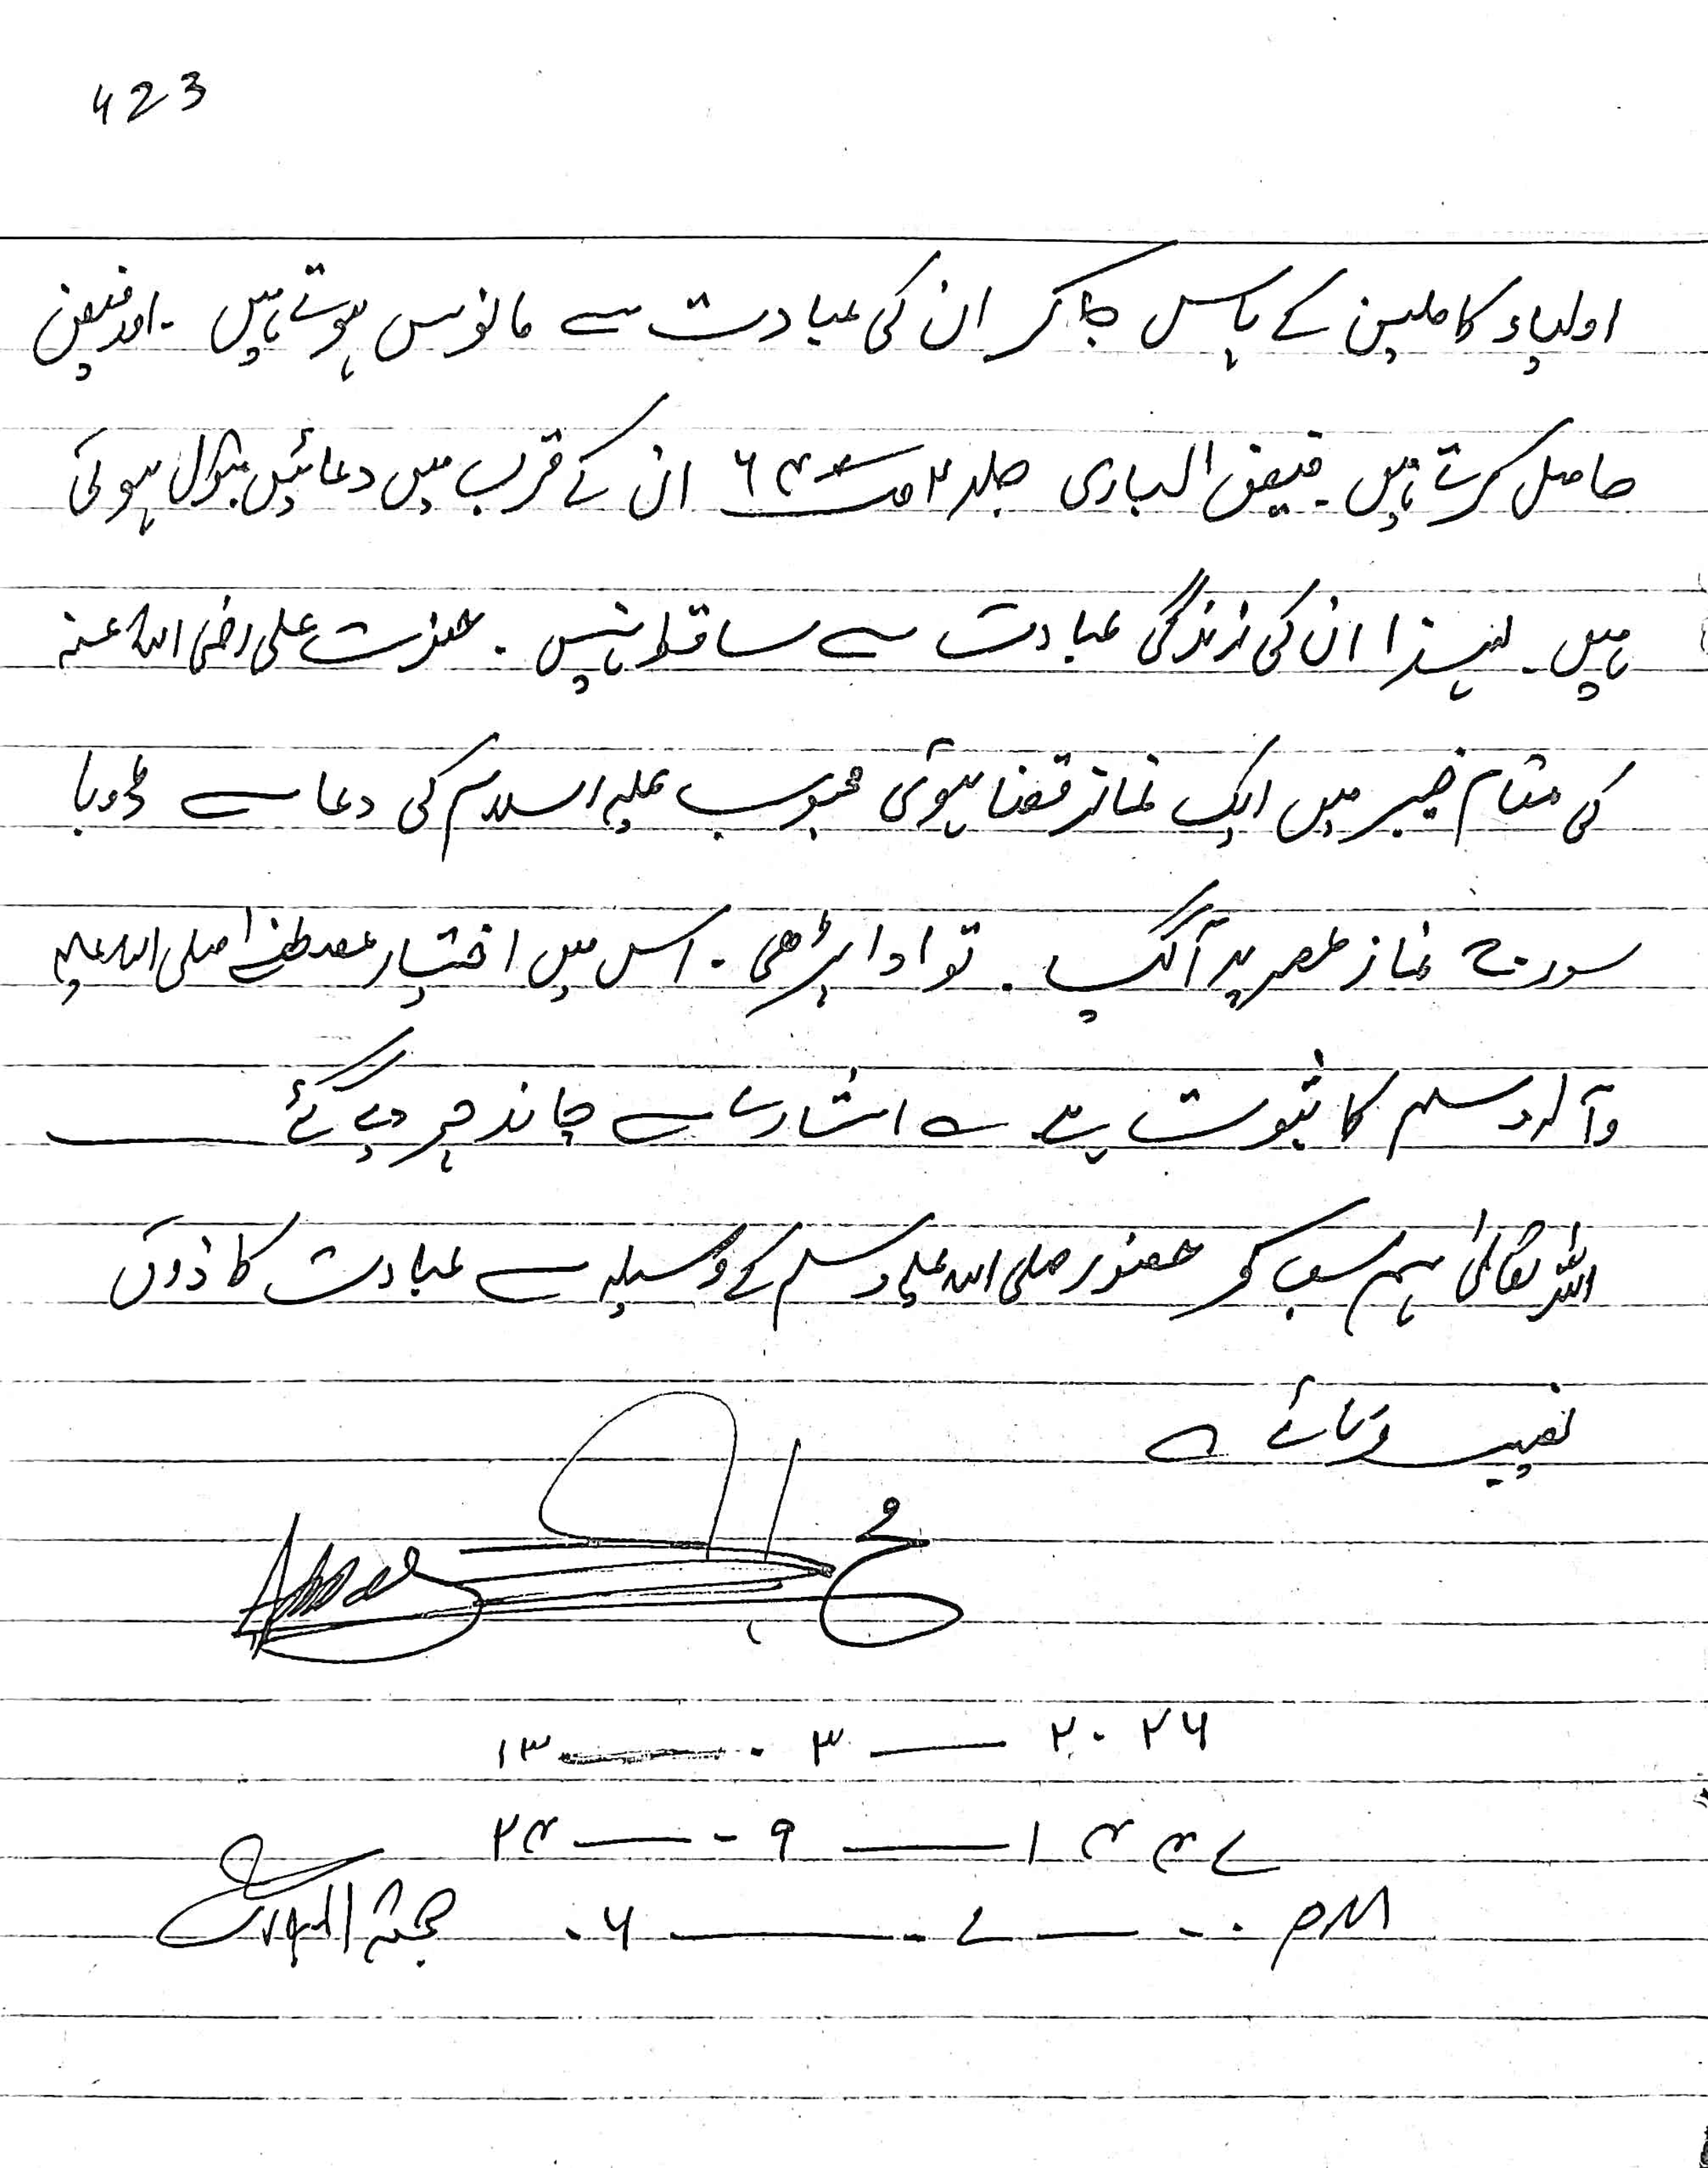 423
اولیاء کاملین کے پاس جا کر ان کی عبادت سے مانوس ہوتے ہیں ۔ اور فیض
حاصل کرتے ہیں ۔ فیض الباری جلد ۲ ص ۶۴ ان کے قرب میں دعائیں قبول ہوتی
ہیں ۔ لہذا ان کی زندگی عبادت سے ساقط نہیں ۔ حضرت علی رضی اللہ عنہ
کی مقام خیبر میں ایک نماز قضا ہوئی محبوب علیہ السلام کی دعا سے ڈوبا
سورج نماز عصر پر آگیا ۔ تو ادا پڑھی ۔ اس میں اختیار مصطفےٰ صلی اللہ علیہ
وآلہ وسلم کا ثبوت ہے اشارے سے چاند چیر دیے گئے
اللہ تعالیٰ ہم سب کو حضور صلی اللہ علیہ وسلم کے وسیلہ سے عبادت کا ذوق
نصیب فرمائے
۱۳ — ۳ — ۲۰۲۶
۲۴ — ۹ — ۱۴۴۷